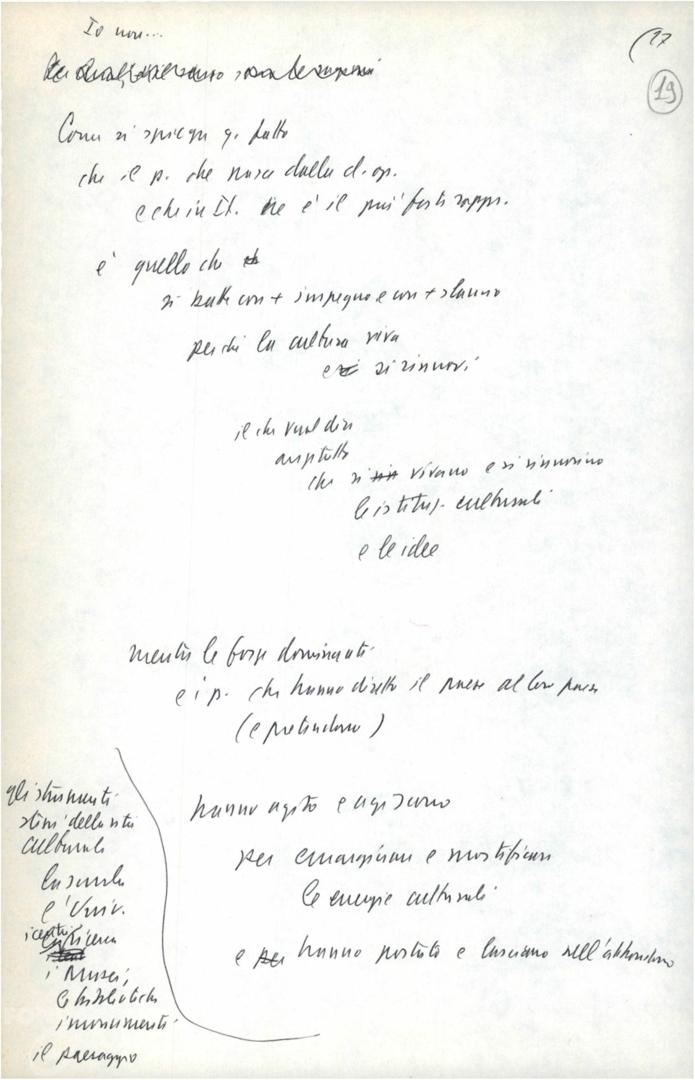 Io non...
(17
19
Come si spiega q. fatto
che il p. che nasce dalla cl. op.
e che in It. ne è il più forte rappr.
è quello che
si batte con + impegno e con + slancio
perché la cultura viva
e si rinnovi
il che vuol dire
anzitutto
che si vivano e si rinnovino
le istituz. culturali
e le idee
mentre le forze dominanti
e i p. che hanno diretto il paese
(e pretendono)
hanno agito e agiscono
per emarginare e mortificare
le energie culturali
e hanno portato e lasciano nell'abbandono
gli strumenti
stessi della vita
culturale
la scuola
l'Univ.
i centri ricerca
i Musei,
le biblioteche
i monumenti
il paesaggio